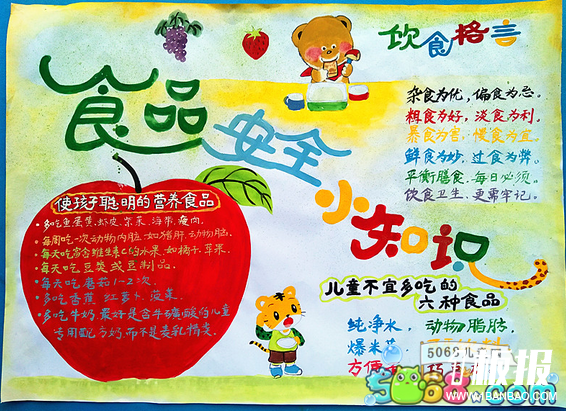 饮食格言
食品安全小知识
杂食为优，偏食为忌。
粗食为好，淡食为利。
暴食为害，慢食为宜。
鲜食为妙，过食为弊。
平衡膳食，每日必须。
饮食卫生，更需牢记。
使孩子聪明的营养食品
·多吃鱼蛋黄、虾皮、紫菜、海带、瘦肉。
·每周吃一次动物内脏，如猪肝、动物脑。
·每天吃富含维生素C的水果，如橘子、苹果。
·每天吃豆浆或豆制品。
·每天吃蘑菇1-2次。
·多吃香蕉、红萝卜、菠菜。
·多吃牛奶，最好是含牛磺酸的儿童
专用配方奶，而不是麦乳精类。
儿童不宜多吃的
六种食品
纯净水，动物脂肪，
爆米花
方便
巧克
5068儿
手抄报
WWW.BANBAO.COM
5068.com